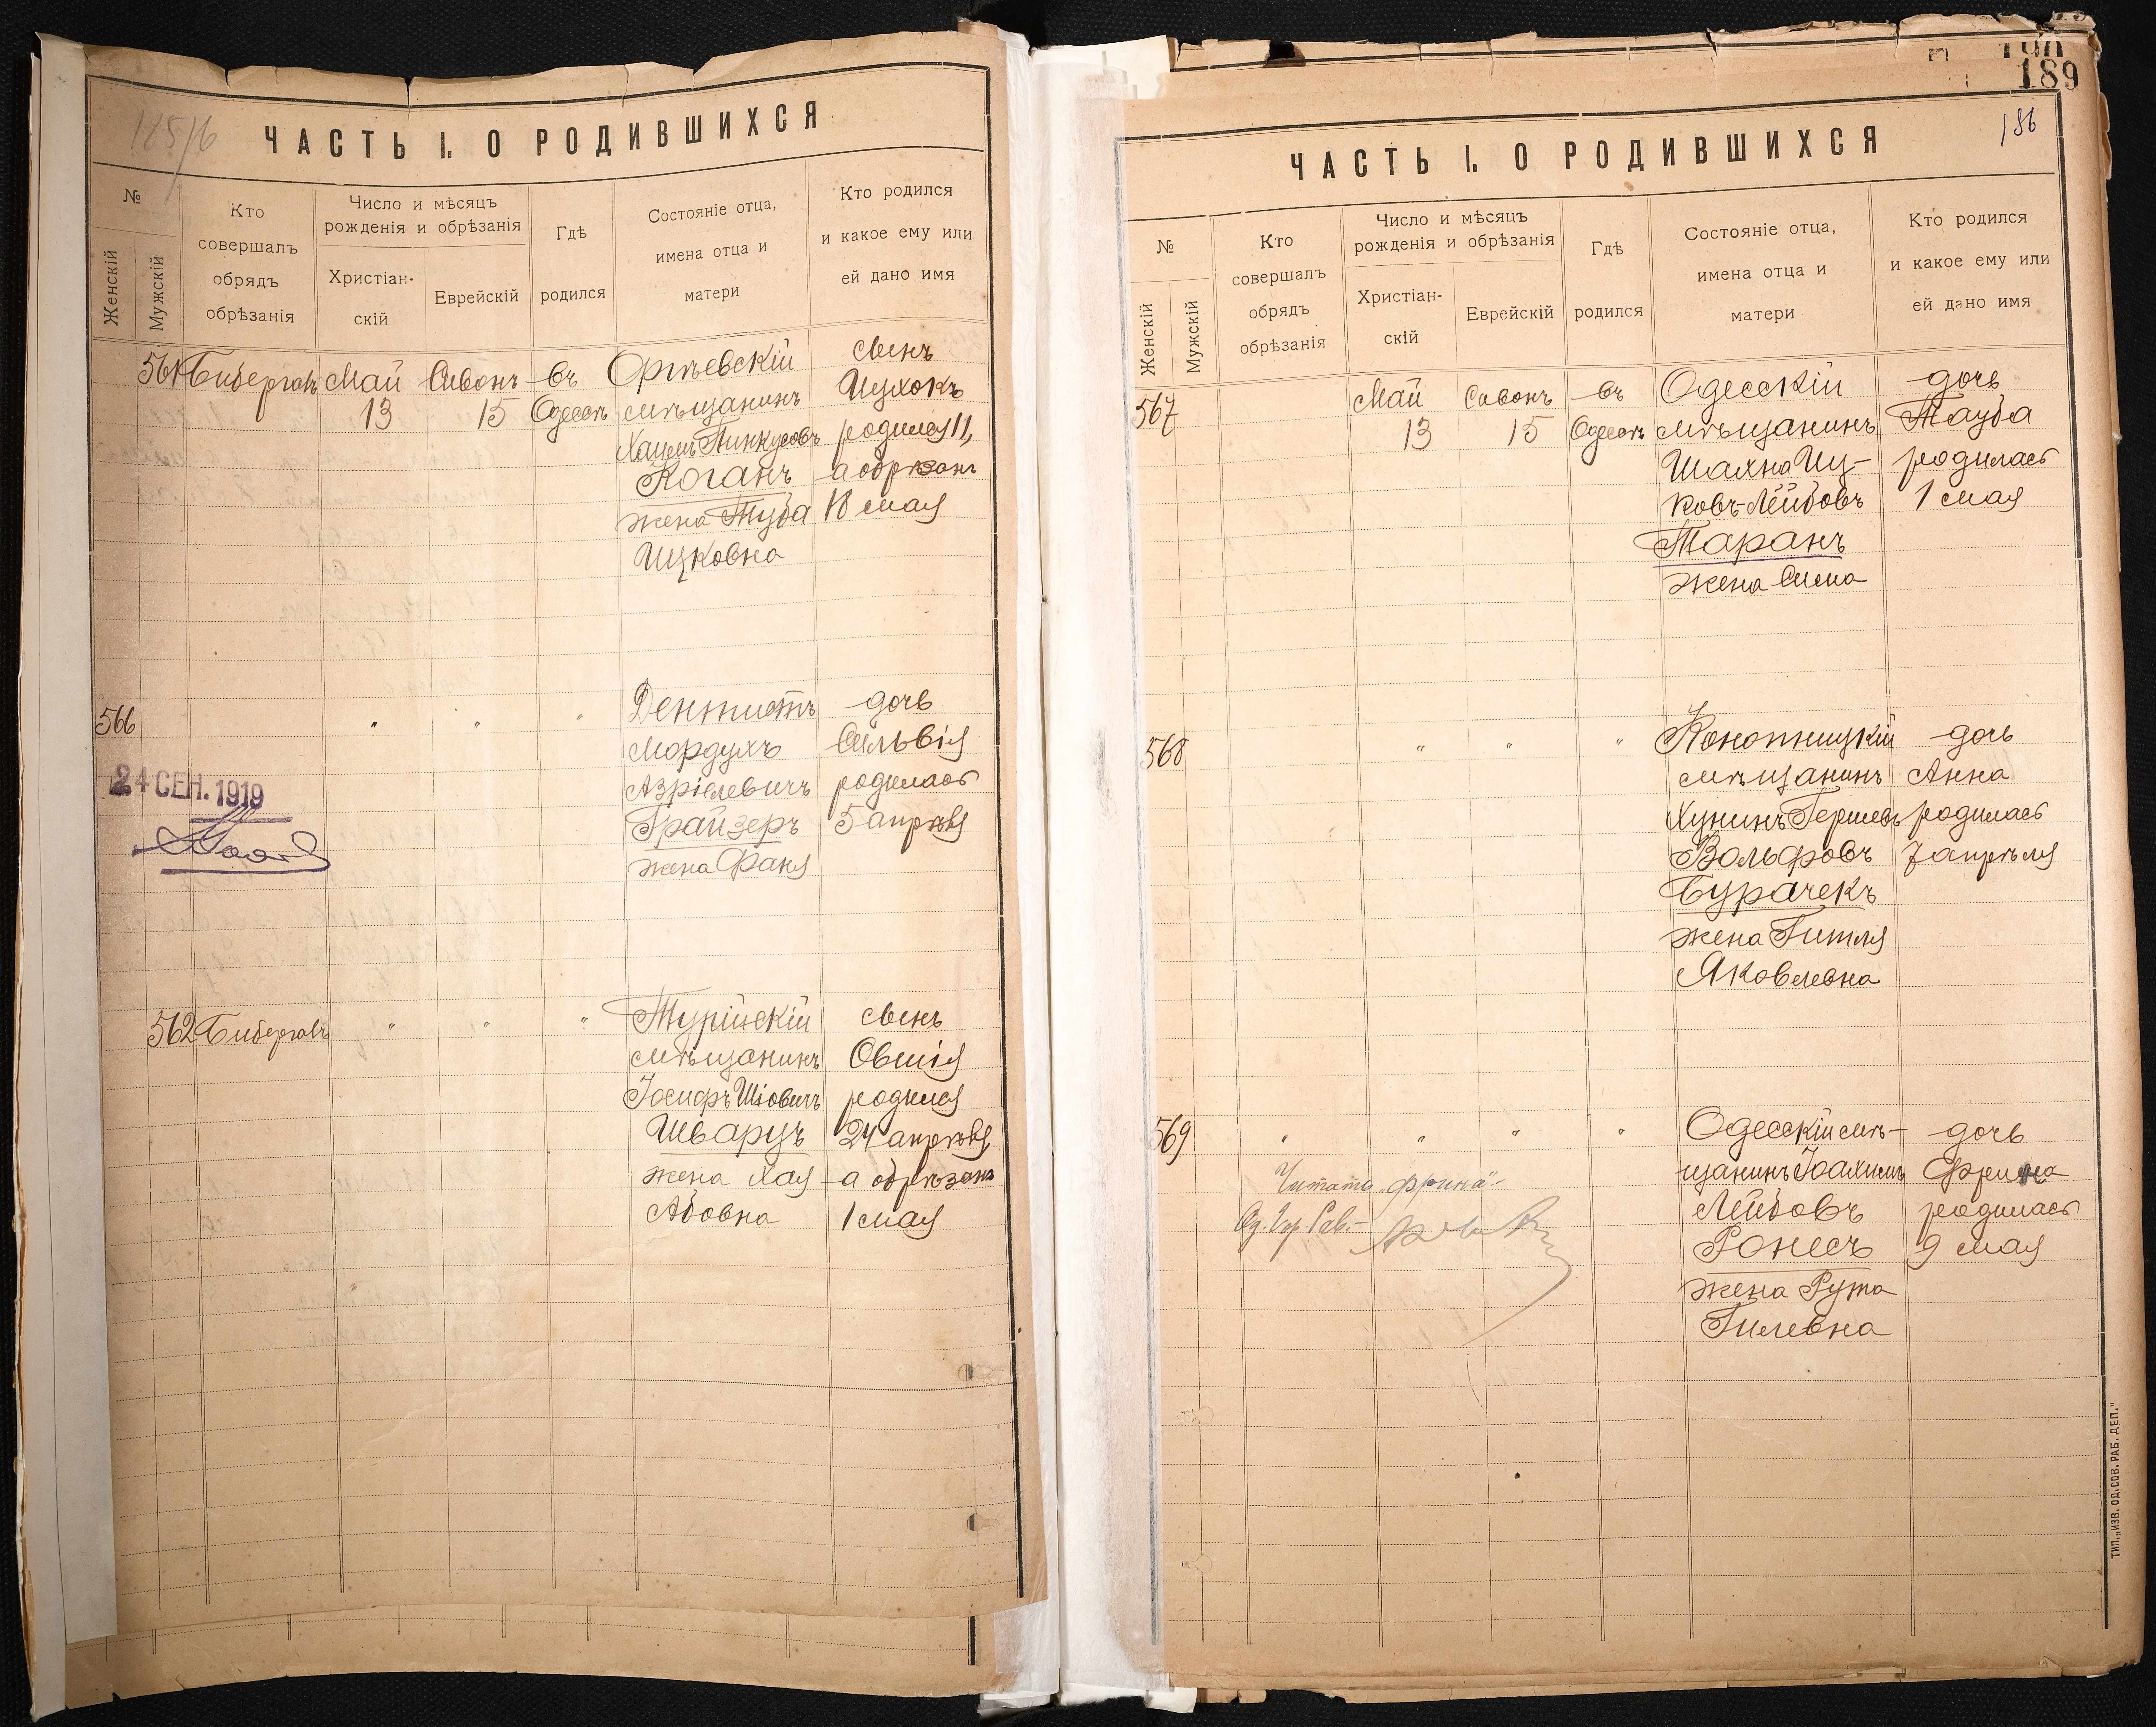 125/6
ЧАСТЬ I. О РОДИВШИХСЯ
№
Женскій
Мужскій
Кто
совершалъ
обрядъ
обрѣзанія
Число и мѣсяцъ
рожденія и обрѣзанія
Христіан-
скій
Еврейскій
Гдѣ
родился
Состояніе отца,
имена отца и
матери
Кто родился
и какое ему или
ей дано имя
561
Бибергалъ
Май
13
Сивонъ
15
въ
Одессѣ
Оргѣевскій
мѣщанинъ
Хаимъ Пинкусовъ
Коганъ
жена Туба
Ицковна
сынъ
Ицхокъ
родился 11,
а обрѣзанъ
18 мая
566
" " "
24 СЕН. 1919
Дентистъ
Мордухъ
Азріелевичъ
Грайзеръ
жена Фаня
дочь
Сильвія
родилась
5 апрѣля
562
Бибергалъ
" " "
Турійскій
мѣщанинъ
Іосифъ Шіовичъ
Шварцъ
жена Хая
Абовна
сынъ
Овшія
родился
24 апрѣля,
а обрѣзанъ
1 мая
189
186
ЧАСТЬ I. О РОДИВШИХСЯ
№
Женскій
Мужскій
Кто
совершалъ
обрядъ
обрѣзанія
Число и мѣсяцъ
рожденія и обрѣзанія
Христіан-
скій
Еврейскій
Гдѣ
родился
Состояніе отца,
имена отца и
матери
Кто родился
и какое ему или
ей дано имя
567
Май
13
Сивонъ
15
въ
Одессѣ
Одесскій
мѣщанинъ
Шахна Иц-
ковъ-Лейбовъ
Таранъ
жена Сима
дочь
Тауба
родилась
1 мая
568
" " "
мѣщанинъ
Хунинъ Гершевъ
Вольфовъ
Бурачекъ
жена Гитля
Яковлевна
дочь
Анна
родилась
7 апрѣля
569
" " " "
Читать „Фрина"-
Од. Гор. Рав.-
Одесскій мѣ-
щанинъ Іоахимъ
Лейбовъ
Ронесъ
жена Рута
Гилевна
дочь
Фрина
родилась
9 мая
ТИП. „ИЗВ. ОД. СОВ. РАБ. ДЕП."